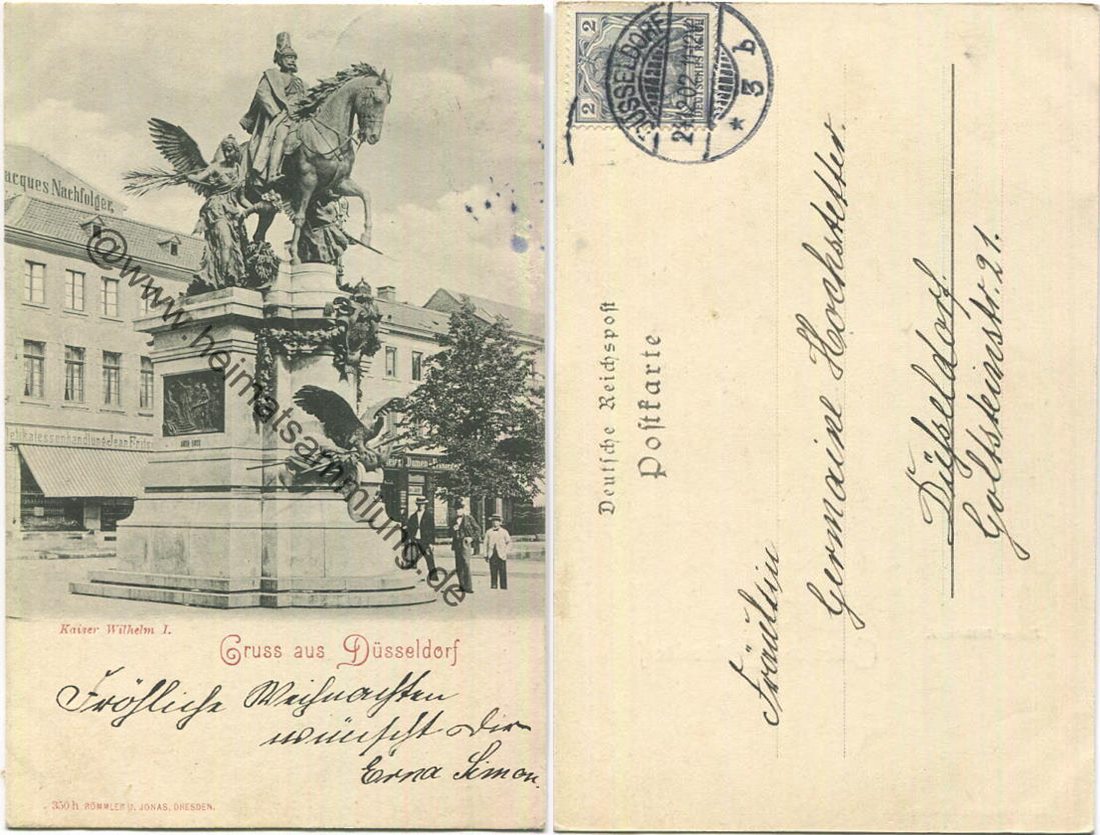 acques Nachfolger.
Delikatessenhandlung Jean Fritz
@www.heimatsammlung.de
Kaiser Wilhelm I.
Gruss aus Düsseldorf
Fröhliche Weihnachten
wünscht Dir
Erna Simon.
350 h RÖMMLER & JONAS, DRESDEN.
2 2
DEUTSCHES REICH
DÜSSELDORF
* 3 b
Deutsche Reichspost
Postkarte
Fräulein
Germaine Hochstetter.
Düsseldorf.
Goltsteinstr. 21.